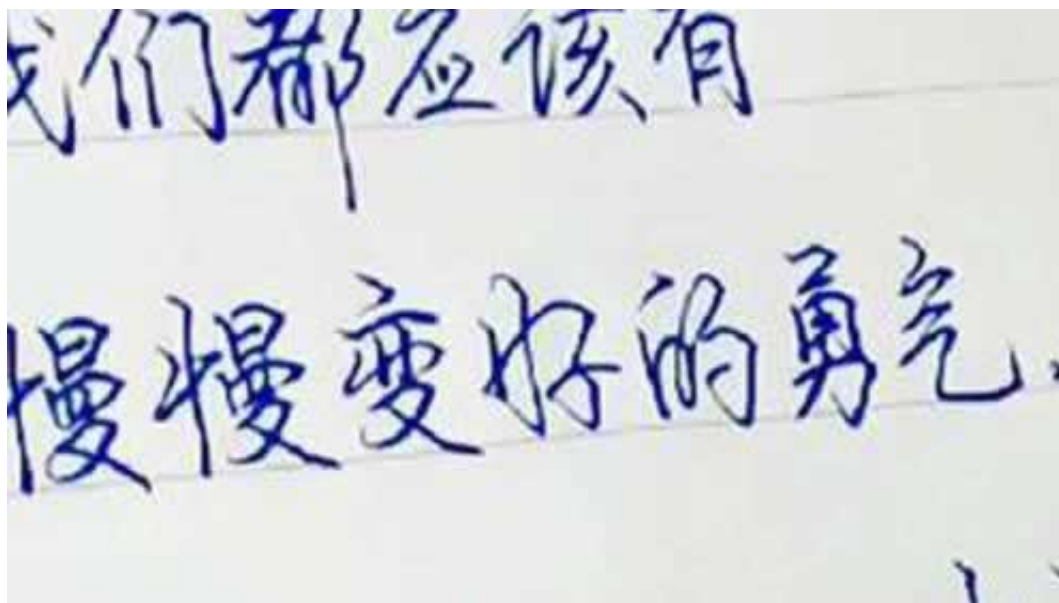 我们都应该有
慢慢变好的勇气.